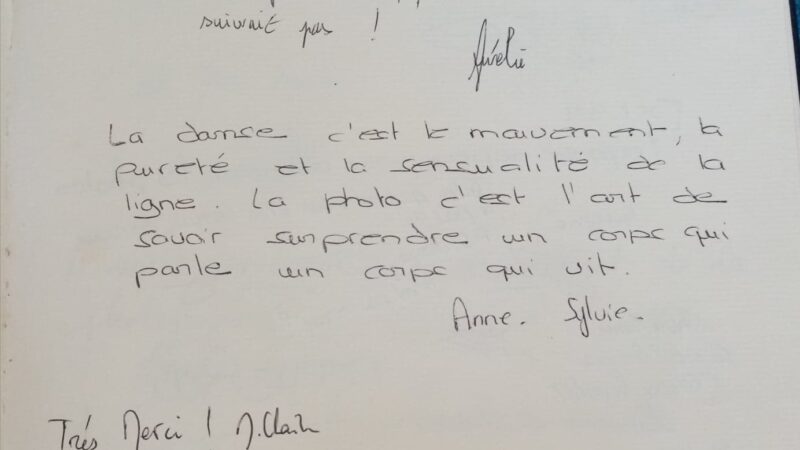 suivait pas !
Aurélie
La danse c'est le mouvement, la
pureté et la sensualité de la
ligne. La photo c'est l'art de
savoir surprendre un corps qui
parle un corps qui vit.
Anne. Sylvie.
Trés Merci !